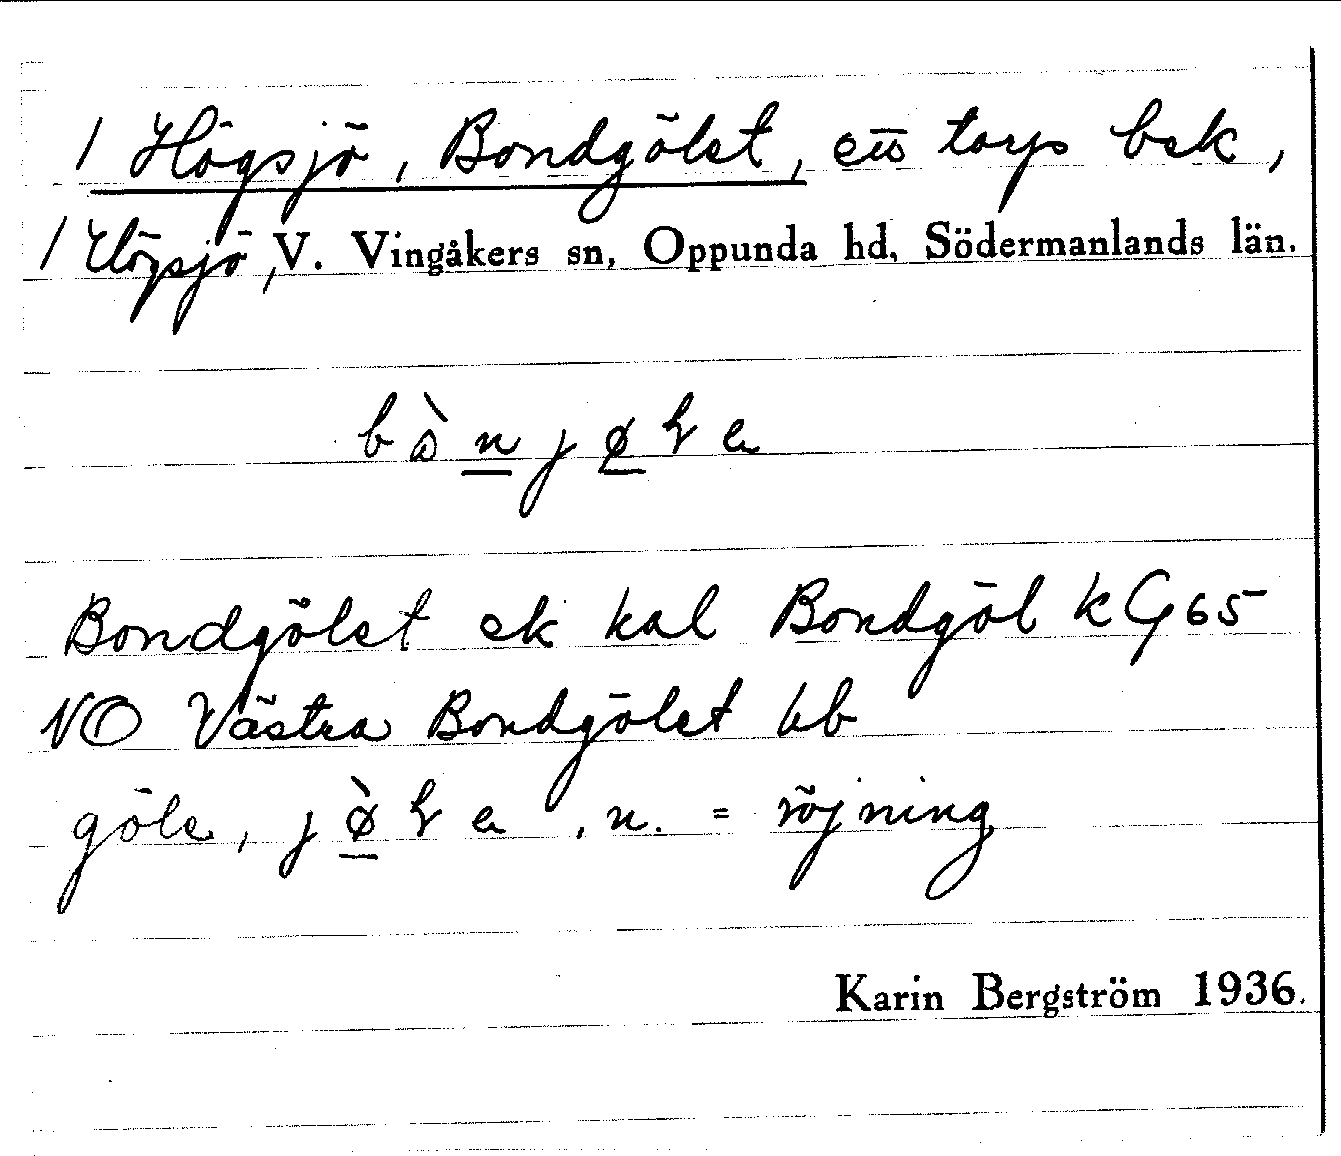 1 Högsjö, Bondgölet, ett torps bek,
1 Högsjö, V. Vingåkers sn, Oppunda hd, Södermanlands län.
Bondgölet ek kal Bondgöl k G 65
NO Västra Bondgölet bb
göle, n. = röjning
Karin Bergström 1936.